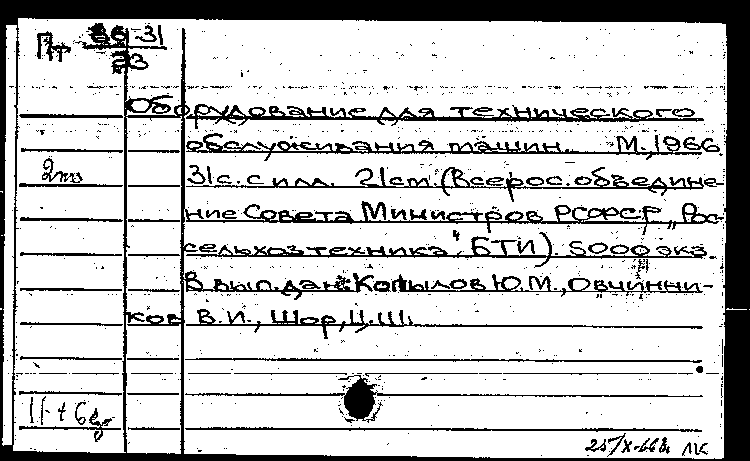 Пт 66-31
23
Оборудование для технического
обслуживания машин. М., 1966
31с. с илл. 21cm. (Всерос. объедине-
ние Совета Министров РСФСР „Рос-
сельхозтехника", БТИ) 5000 экз.
В вып. дан.: Копылов Ю.М., Овчинни-
ков В.И., Шор, Ц.Ш.
25/X-66г.